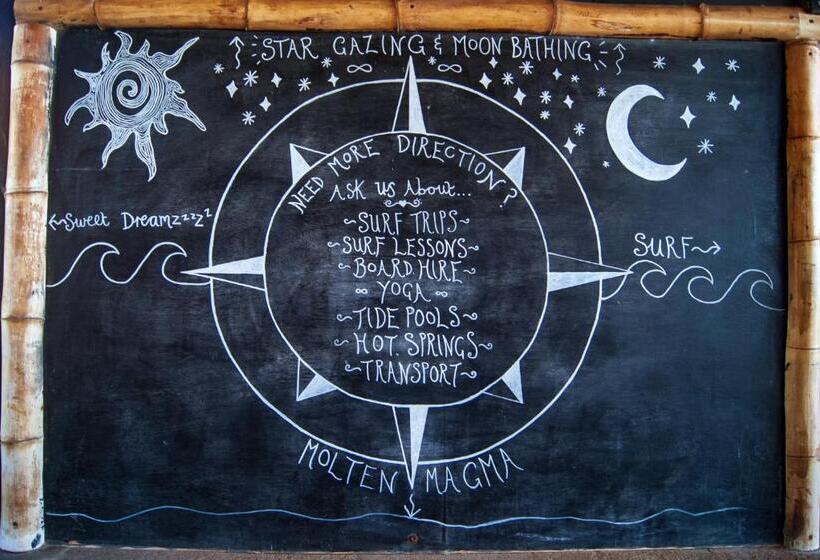 STAR GAZING & MOON BATHING
NEED MORE DIRECTION?
ASK US ABOUT...
SURF TRIPS
SURF LESSONS
BOARD HIRE
YOGA
TIDE POOLS
HOT SPRINGS
TRANSPORT
Sweet Dreamzzzzz
SURF
MOLTEN MAGMA